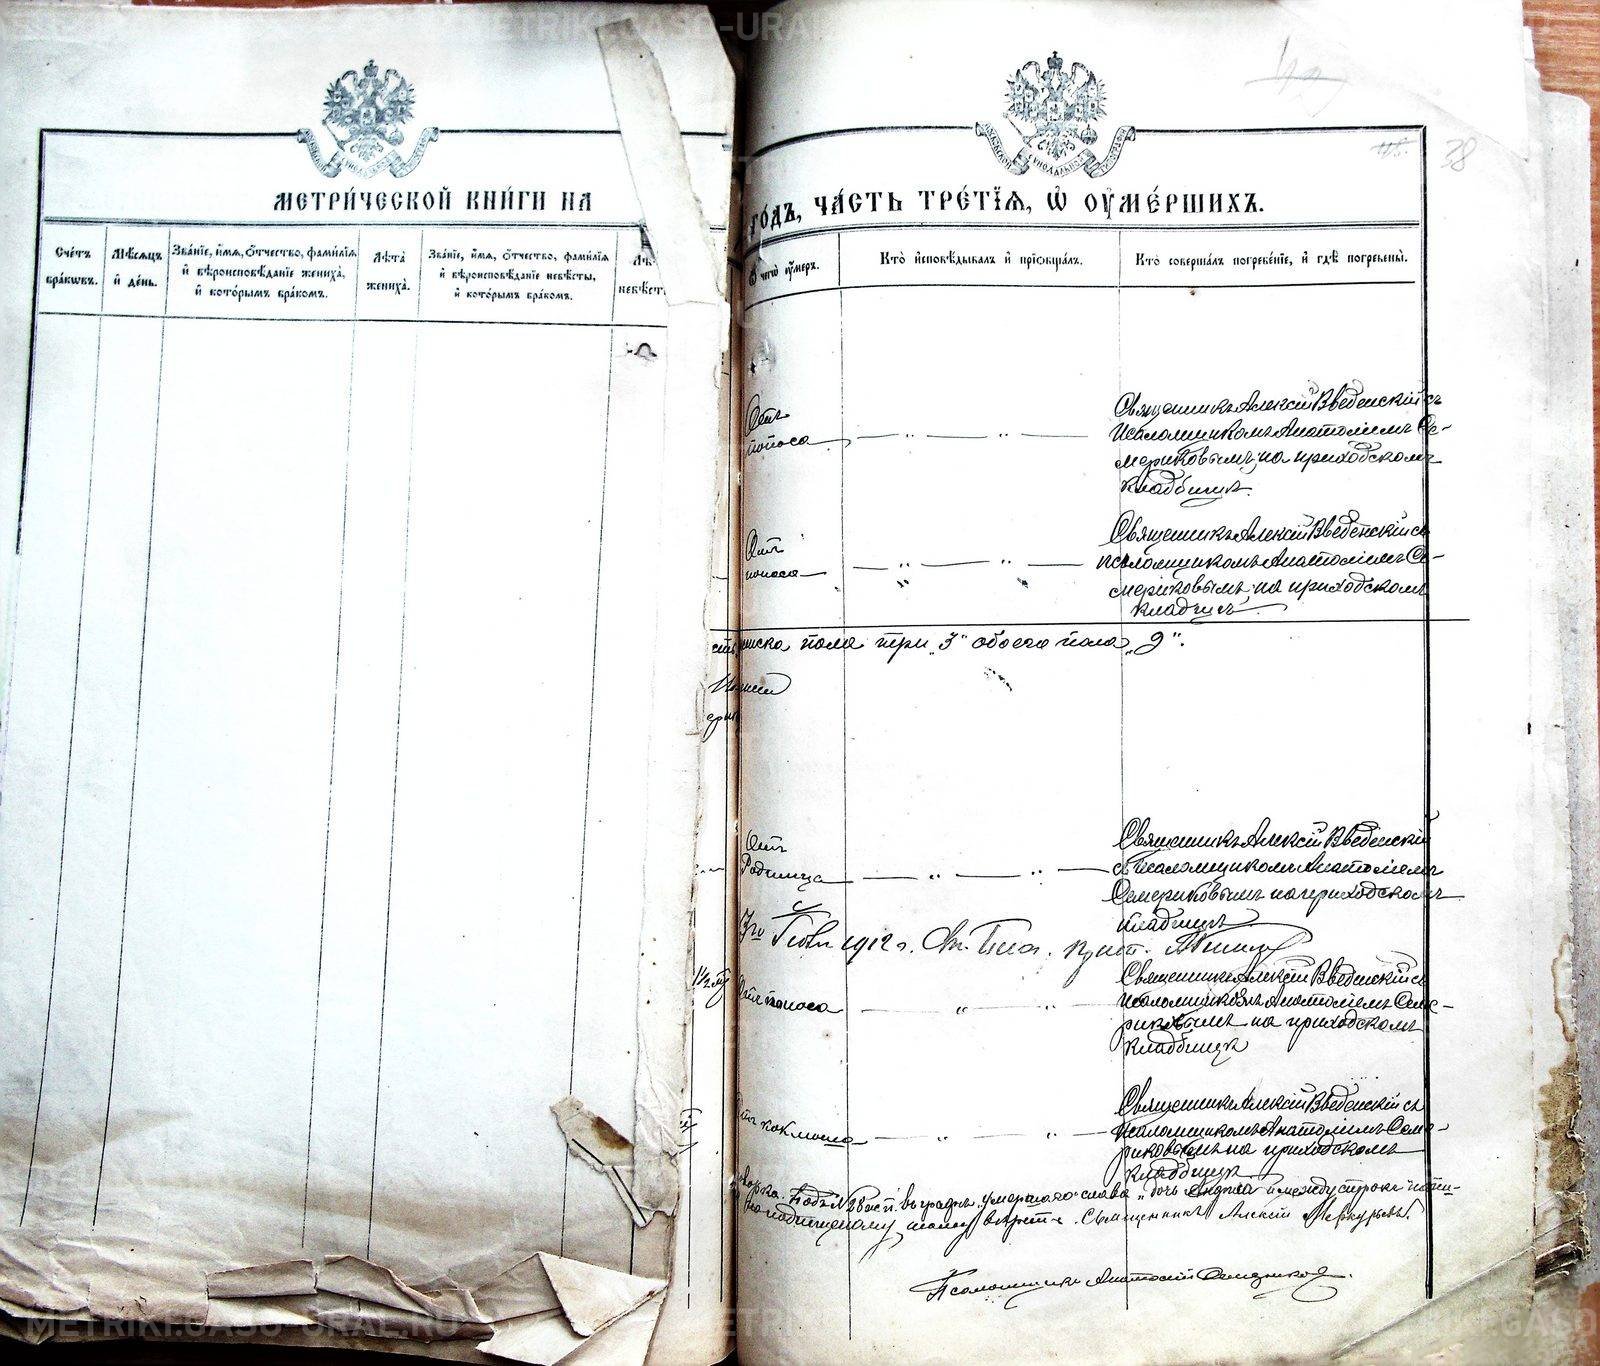 МЕТРИ́ЧЕСКОЙ КНИ́ГИ НА
Сче́тъ
бра́кѡвъ.
Мѣ́сяцъ
и҆ де́нь.
Зва́нїе, и҆́мѧ, ѻ҆́тчество, фами́лїѧ
и҆ вѣроисповѣ́данїе жениха̀,
и҆ кото́рымъ бра́комъ.
Лѣ́та
жениха̀.
Зва́нїе, и҆́мѧ, ѻ҆́тчество, фами́лїѧ
и҆ вѣроисповѣ́данїе невѣ́сты,
и҆ кото́рымъ бра́комъ.
Лѣ́
невѣ́ст
38
го́дъ, ЧА́СТЬ ТРЕ́ТЇѦ, Ѽ ОУ҆МЕ́РШИХЪ.
чегѡ̀ оу҆́меръ.
Кто̀ и҆сповѣ́дывалъ и҆ прїѡбща́лъ.
Кто̀ соверша́лъ погребе́нїе, и҆ гдѣ̀ погребены̀.
Отъ
поноса
Священникъ Алексій Введенскій съ
псаломщикомъ Анатоліемъ Се-
мериковымъ, на приходскомъ
кладбищѣ.
Отъ
поноса
Священникъ Алексій Введенскій съ
псаломщикомъ Анатоліемъ Се-
мериковымъ, на приходскомъ
кладбищѣ
пола три „3" обоего пола „9".
Отъ
Родимца
Священникъ Алексій Введенскій
съ псаломщикомъ Анатоліемъ
Семериковымъ на приходскомъ
кладбищѣ
1912 г.
Отъ поноса
Священникъ Алексій Введенскій съ
псаломщикомъ Анатоліемъ Семе-
риковымъ на приходскомъ
кладбищѣ
Отъ коклюша
Священникъ Алексій Введенскій съ
псаломщикомъ Анатоліемъ Семе-
риковымъ на приходскомъ
кладбищѣ
въ графѣ „умершаго" слова „дочь и между строкъ
вѣрить. Священникъ Алексій Меркурьевъ.
Псаломщикъ Анатолій Семериковъ.
METRIKI.GASO-URAL.RU